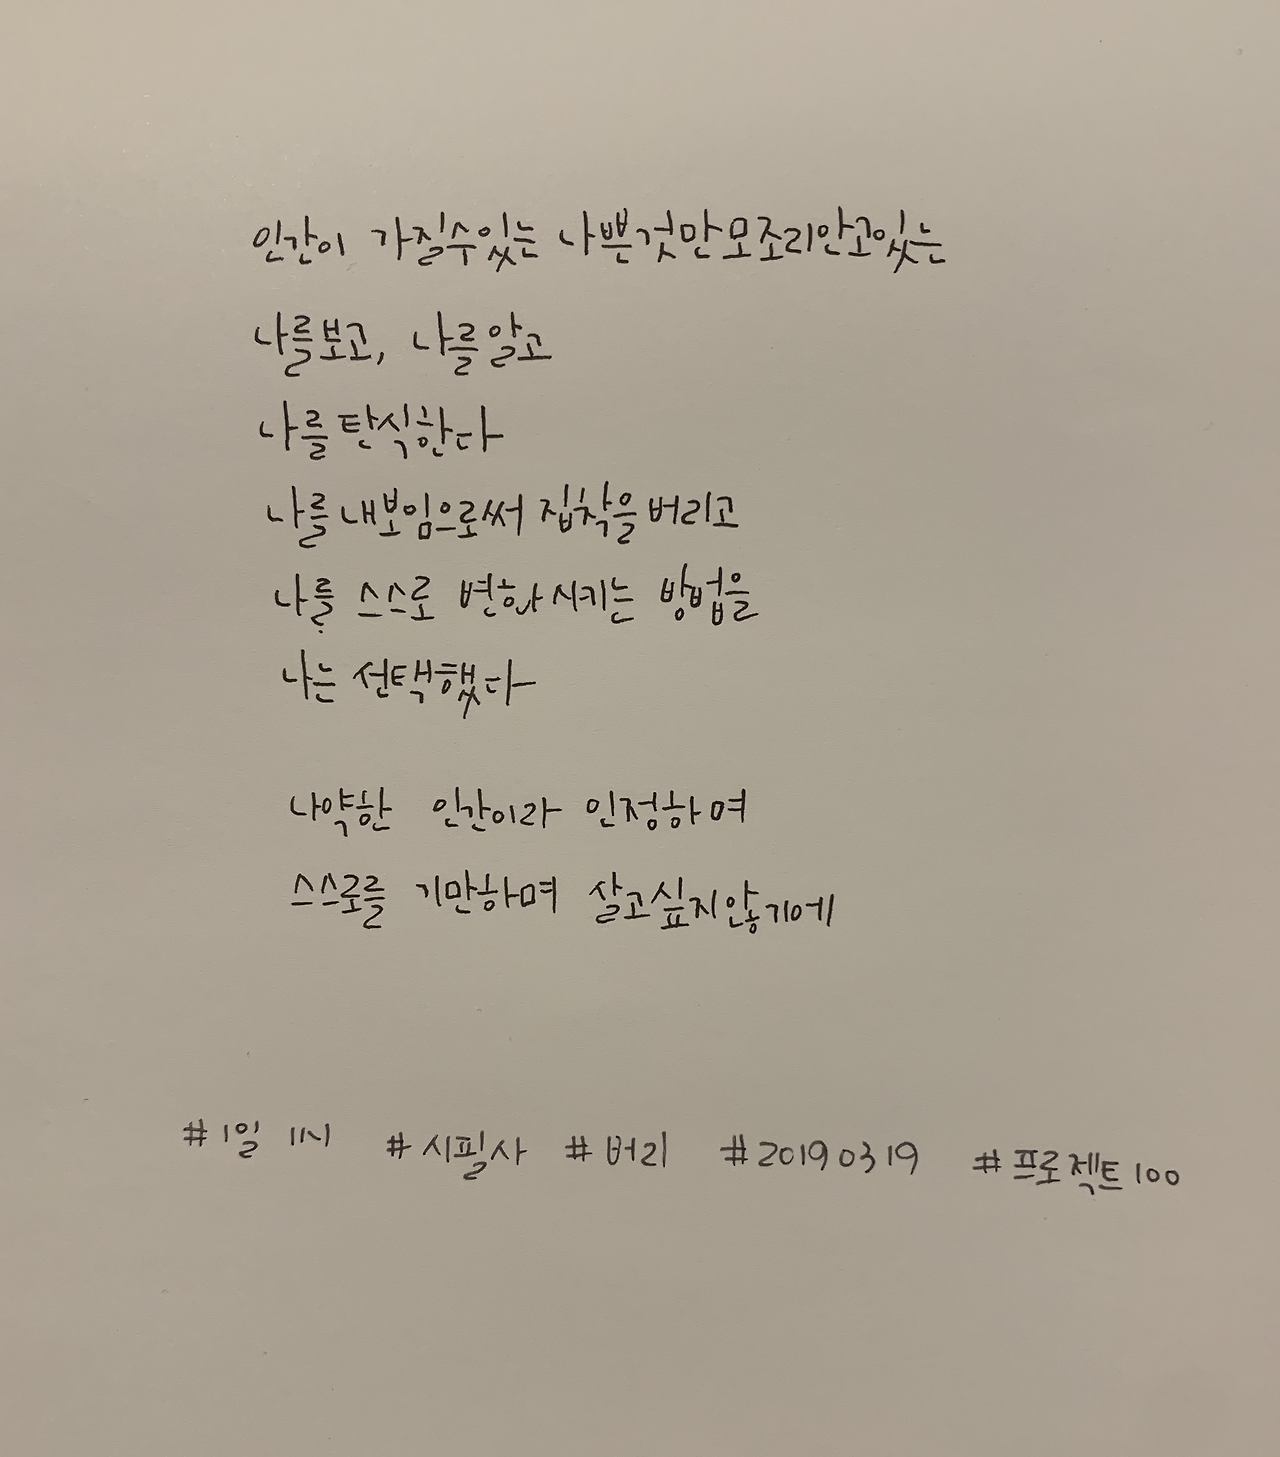 인간이 가질수있는 나쁜것만모조리안고있는
나를보고, 나를알고
나를탄식한다
나를내보임으로써 집착을버리고
나를 스스로 변화시키는 방법을
나는 선택했다
나약한 인간이라 인정하며
스스로를 기만하며 살고싶지않기에
#1일 1시 #시필사 #버리 #20190319 #프로젝트100